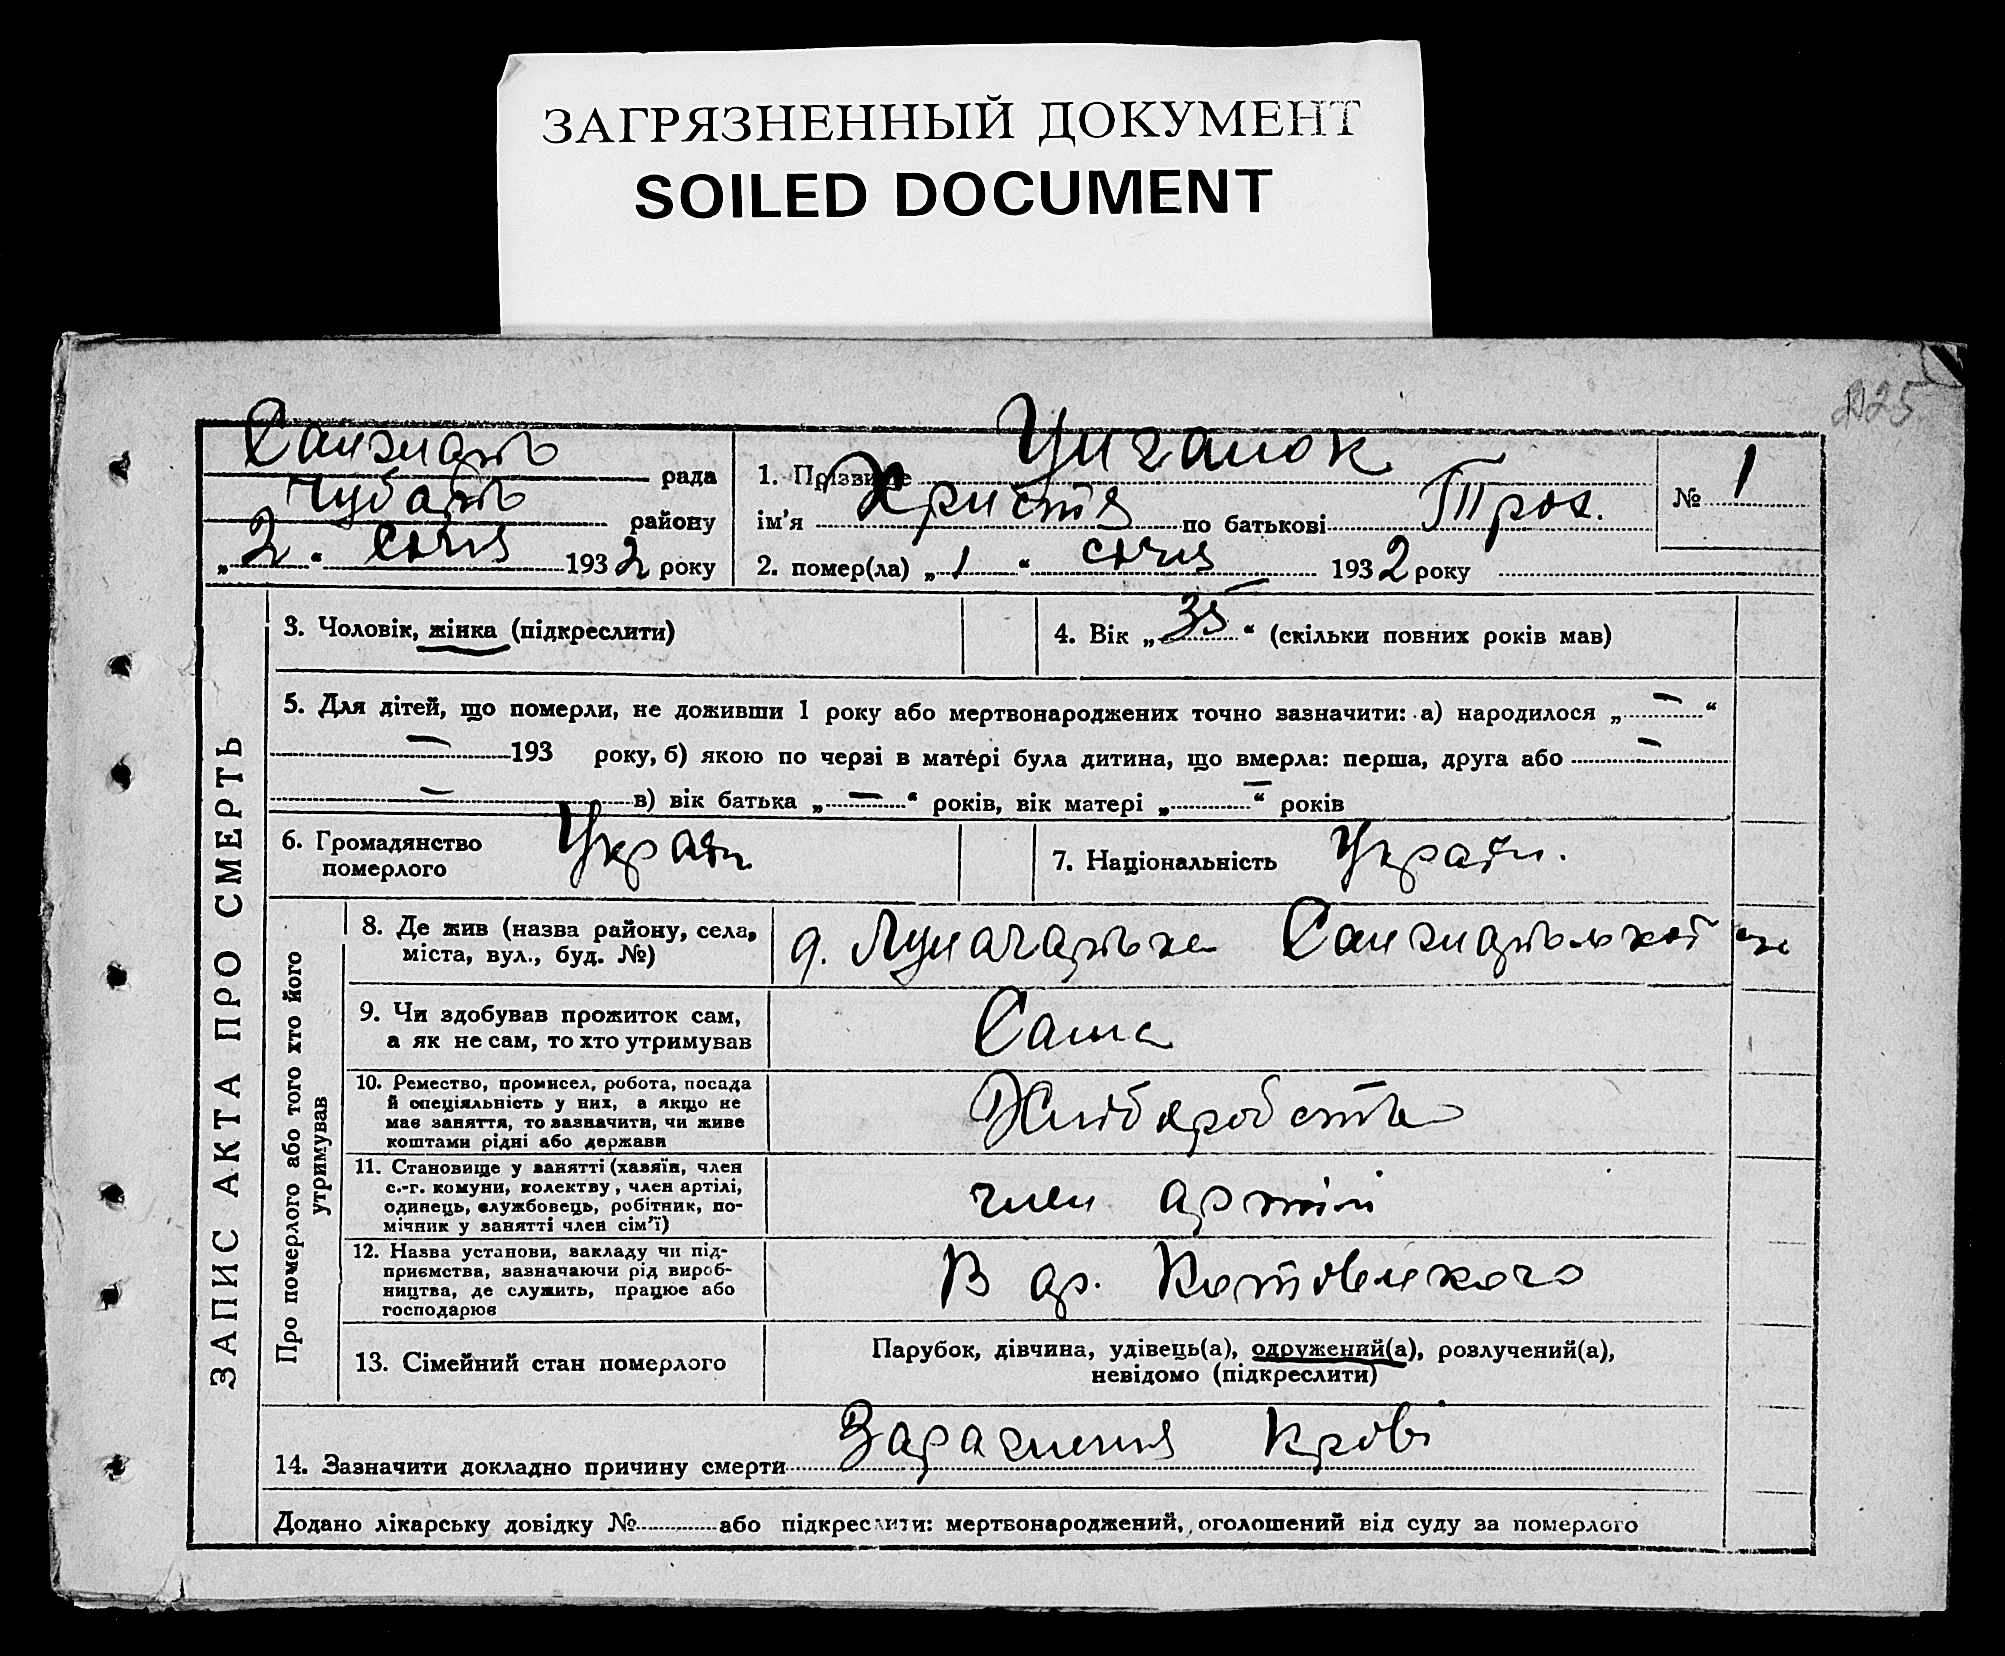 ЗАГРЯЗНЕННЫЙ ДОКУМЕНТ
SOILED DOCUMENT
рада
району
„ 2 “ січня 1932 року
1. Прізвище Циганок
ім’я Христя по батькові Троx.
2. помер(ла) „ 1 “ січня 1932 року
№ 1
ЗАПИС АКТА ПРО СМЕРТЬ
3. Чоловік, жінка (підкреслити)
4. Вік „ 35 “ (скільки повних років мав)
5. Для дітей, що померли, не доживши 1 року або мертвонароджених точно зазначити: а) народилося „ — “
— 193 року, б) якою по черзі в матері була дитина, що вмерла: перша, друга або —
— в) вік батька „ — “ років, вік матері „ — “ років
6. Громадянство
померлого
Україн
7. Національність Україн.
Про померлого або того хто його
утримував
8. Де жив (назва району, села,
міста, вул., буд. №)
9. Чи здобував прожиток сам,
а як не сам, то хто утримував
Сама
10. Ремество, промисел, робота, посада
й спеціяльність у них, а якщо не
має заняття, то зазначити, чи живе
коштами рідні або держави
Хліборобств
11. Становище у занятті (хазяїн, член
с.-г. комуни, колектву, член артілі,
одинець, службовець, робітник, по-
мічник у занятті член сім’ї)
член артілі
12. Назва установи, закладу чи під-
приємства, зазначаючи рід вироб-
ництва, де служить, працює або
господарює
В ар. Котовського
13. Сімейний стан померлого
Парубок, дівчина, удівець(а), одружений(а), розлучений(а),
невідомо (підкреслити)
14. Зазначити докладно причину смерти Зараження крові
Додано лікарську довідку № або підкреслити: мертвонароджений, оголошений від суду за померлого